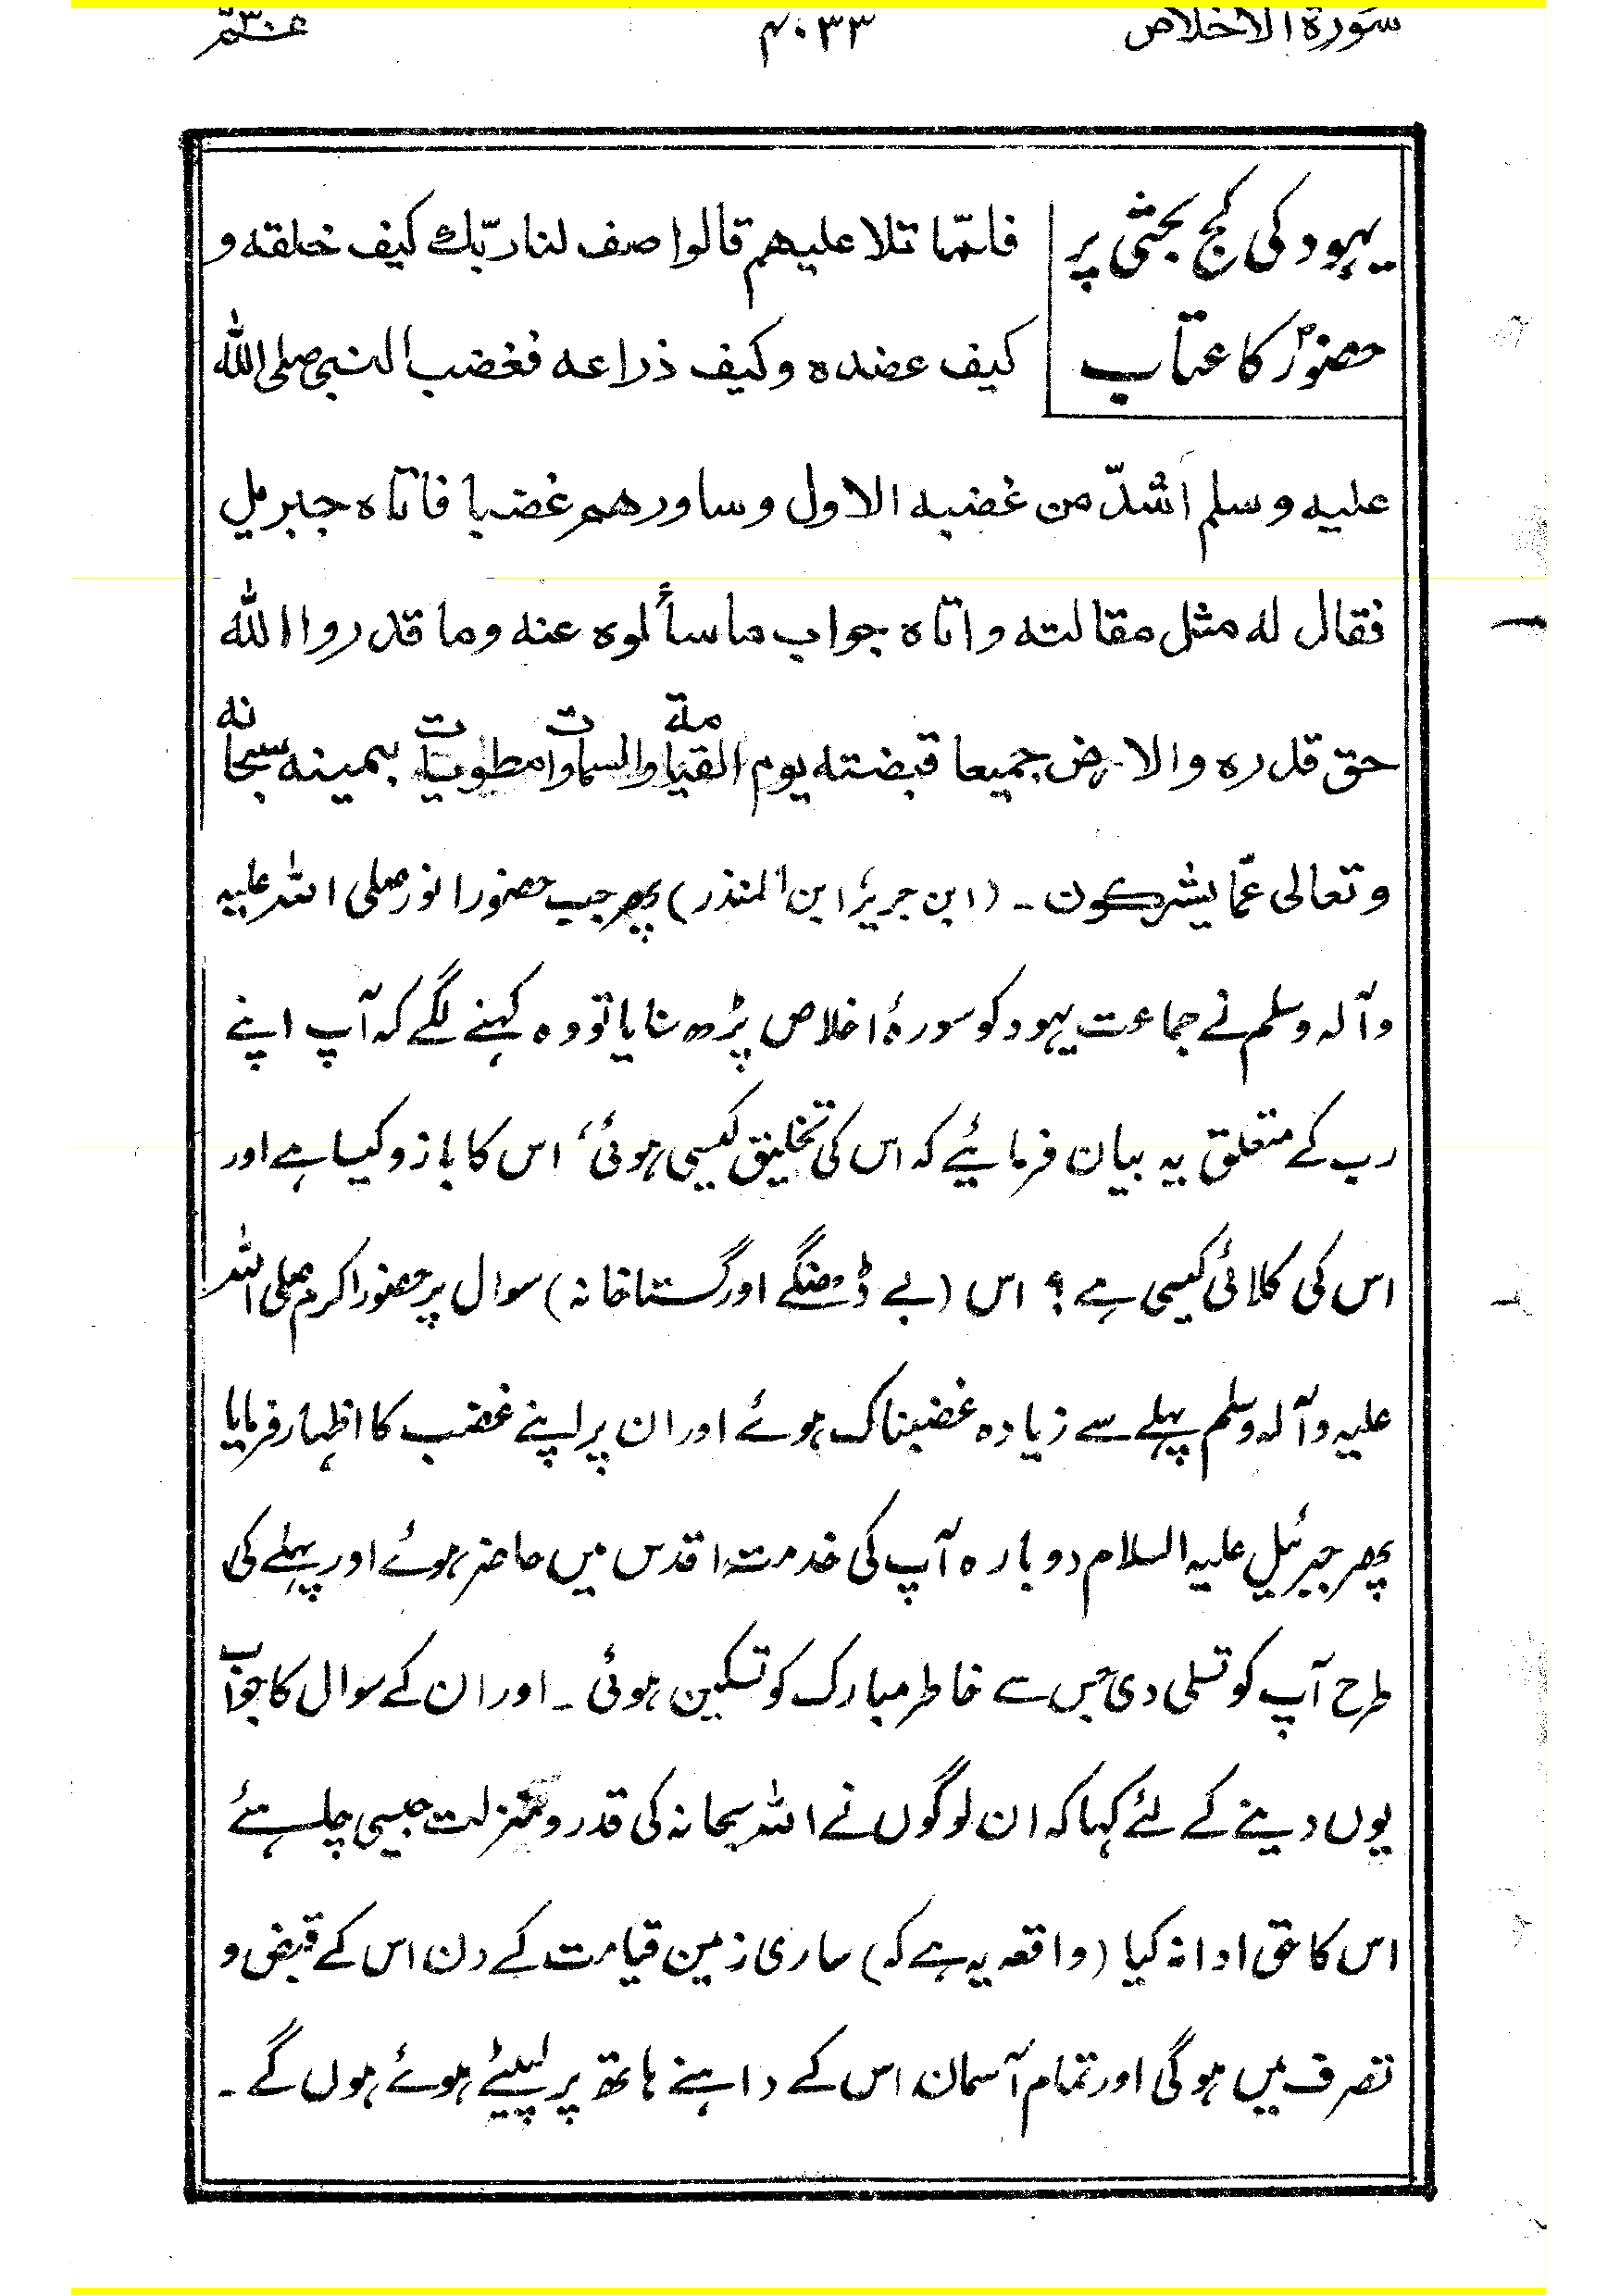 سورة الاخلاص ۴۰۳۳ عم ۳۰
یہود کی کج بحثی پر
حضورؐ کا عتاب
فلمّا تلا علیهم قالوا صف لنا ربّك كیف خلقه و
كیف عضده و كیف ذراعه فغضب النبی صلی الله
علیه و سلم اشدّ من غضبه الاول و ساورهم غضبا فاتاه جبریل
فقال له مثل مقالته و اتاه جواب ما سألوه عنه وما قدروا الله
حق قدره و الارض جمیعا قبضته یوم القیامة والسماوات مطویات بیمینه سبحانه
و تعالی عمّا یشركون ۔ (ابن جریر، ابن المنذر) پھر جب حضور انور صلی اللہ علیہ
وآلہ وسلم نے جماعت یہود کو سورۂ اخلاص پڑھ سنایا تو وہ کہنے لگے کہ آپ اپنے
رب کے متعلق یہ بیان فرمائیے کہ اس کی تخلیق کیسی ہوئی، اس کا بازو کیسا ہے اور
اس کی کلائی کیسی ہے ؟ اس (بے ڈھنگے اور گستاخانہ) سوال پر حضور اکرم صلی اللہ
علیہ وآلہ وسلم پہلے سے زیادہ غضبناک ہوئے اور ان پر اپنے غضب کا اظہار فرمایا
پھر جبرئیل علیہ السلام دوبارہ آپ کی خدمت اقدس میں حاضر ہوئے اور پہلے کی
طرح آپ کو تسلی دی جس سے خاطر مبارک کو تسکین ہوئی ۔ اور ان کے سوال کا جواب
یوں دینے کے لئے کہا کہ ان لوگوں نے اللہ سبحانہ کی قدر و منزلت جیسی چاہئے
اس کا حق ادا نہ کیا (واقعہ یہ ہے کہ) ساری زمین قیامت کے دن اس کے قبض و
تصرف میں ہوگی اور تمام آسمان اس کے داہنے ہاتھ پر لپیٹے ہوئے ہوں گے ۔